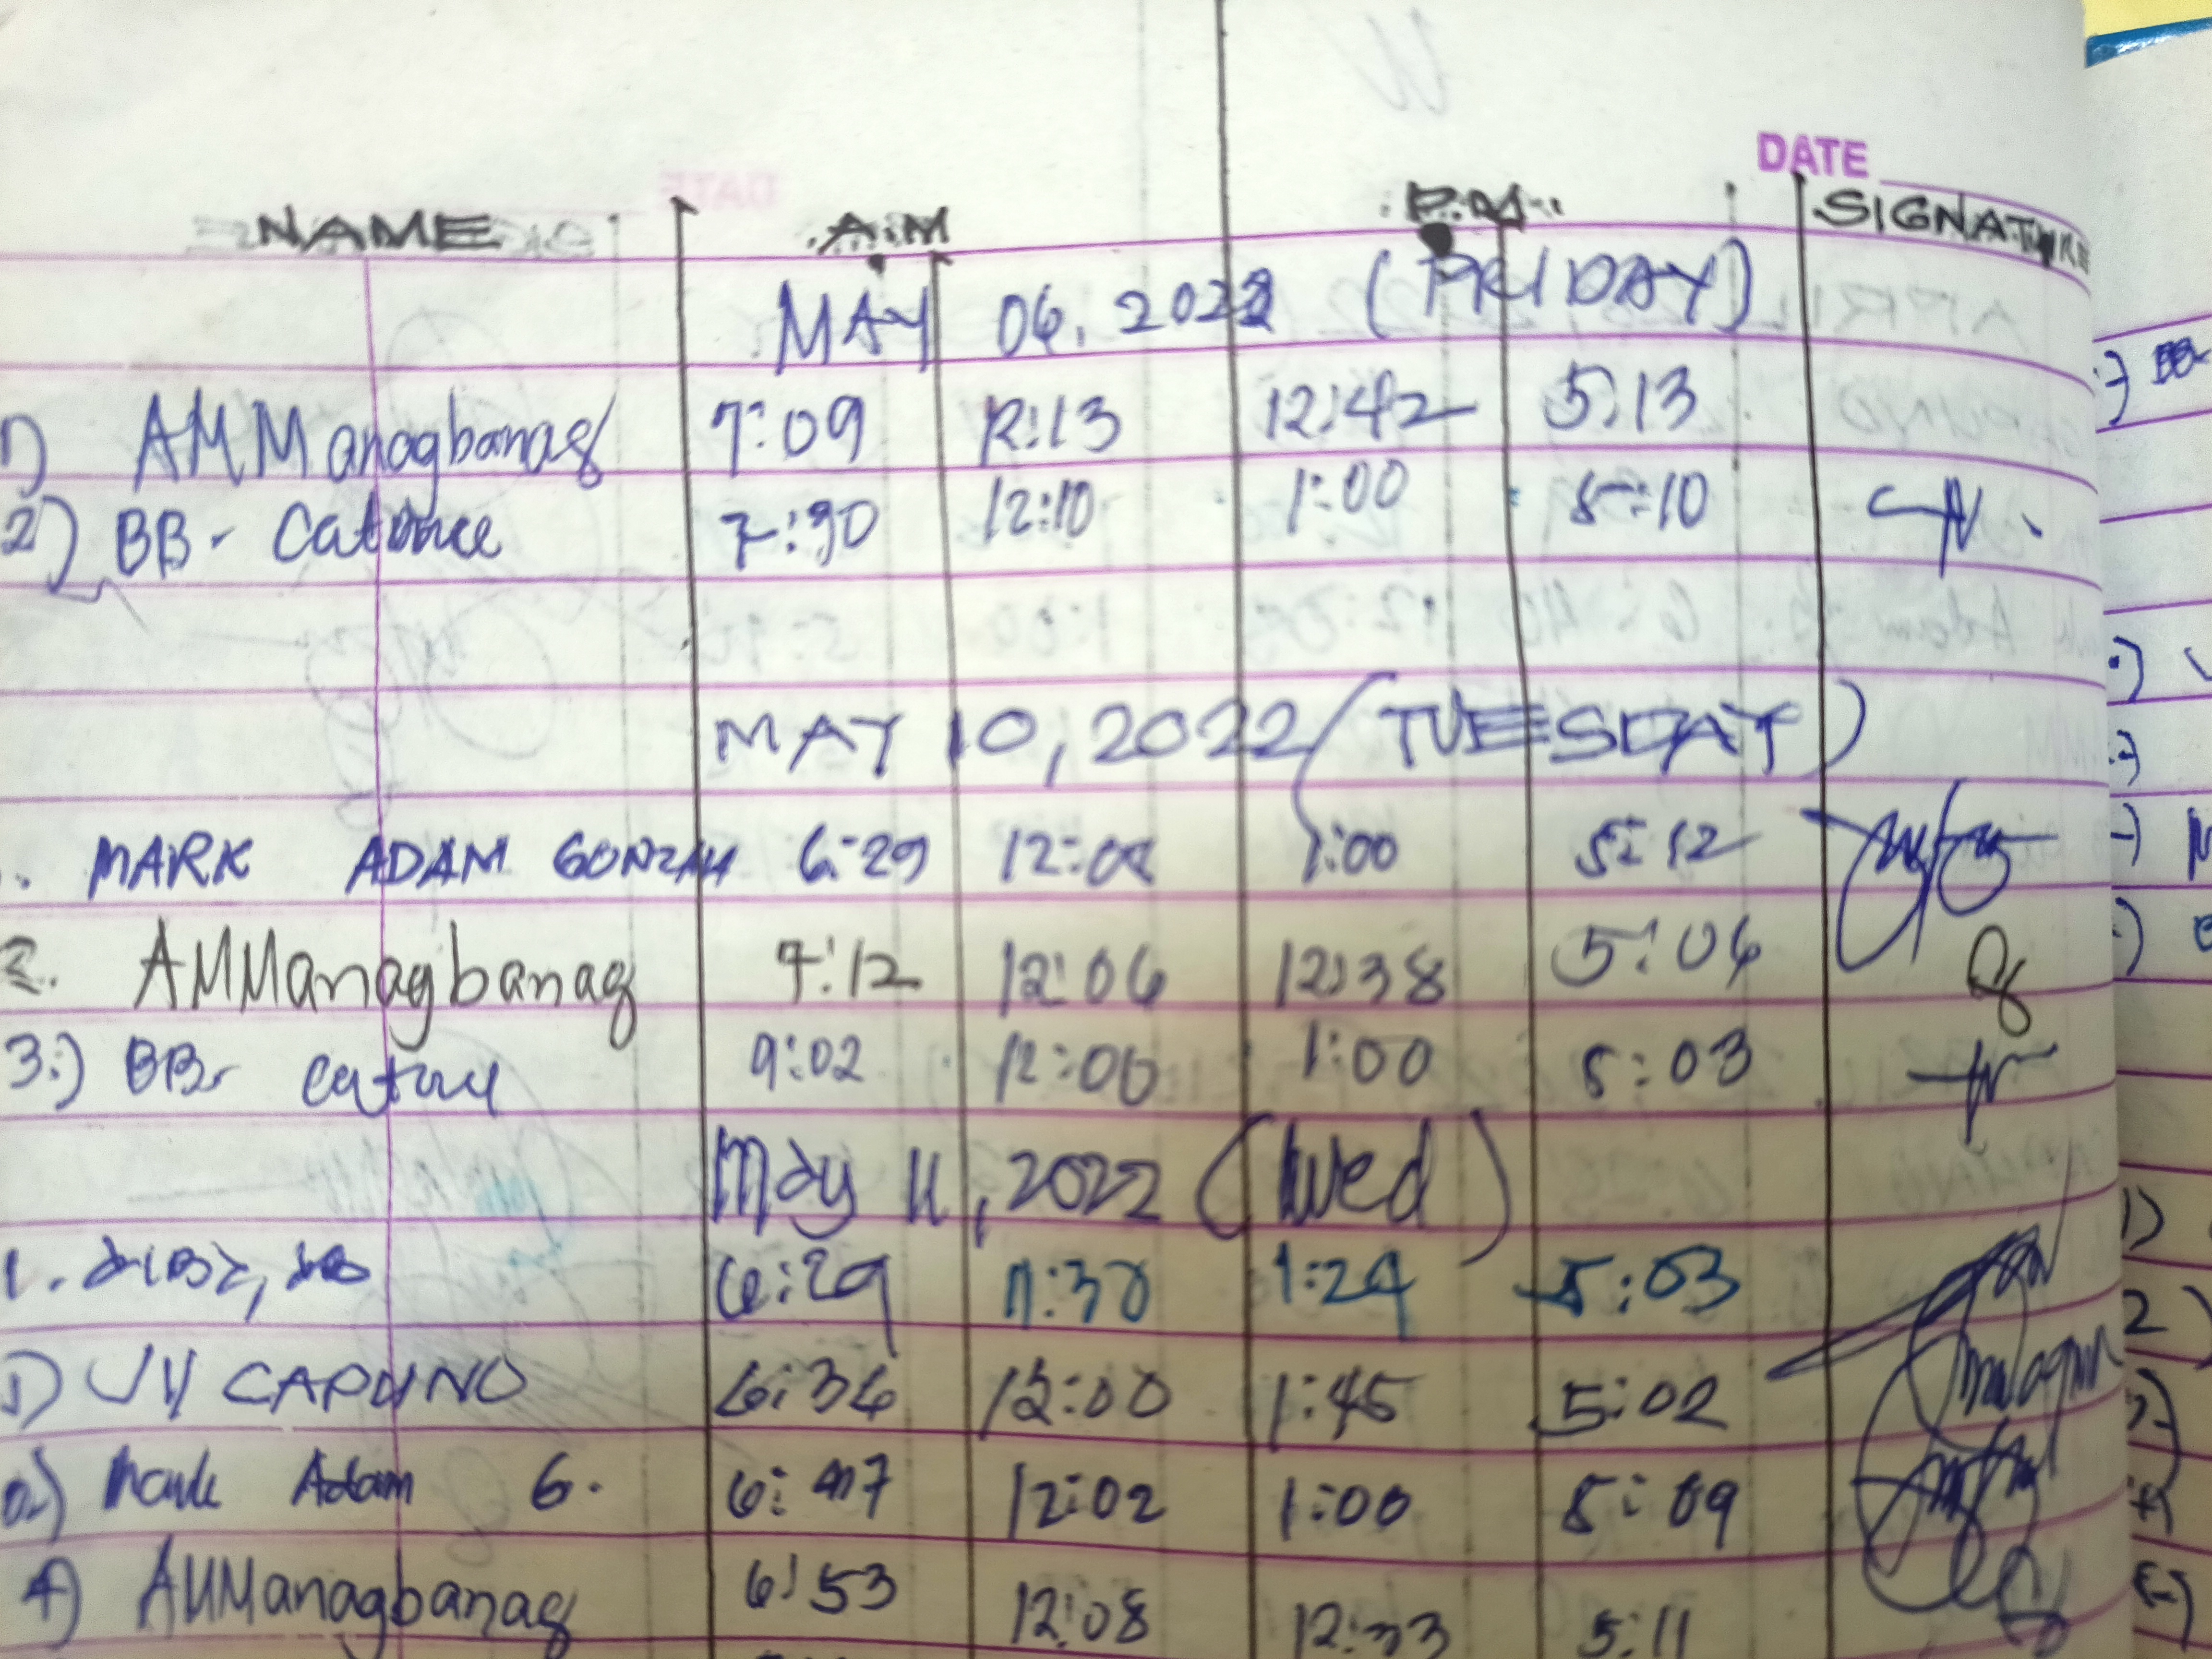 DATE
NAME A.M P.M. SIGNATURE
MAY 06, 2022 (FRIDAY)
1) AMManagbanag 7:09 12:13 12:42 5:13
2) BB- Catorce 7:30 12:10 1:00 5:10
MAY 10, 2022 (TUESDAY)
MARK ADAM 6:29 12:08 1:00 5:12
2. AMManagbanag 7:12 12:06 12:38 5:06
3.) BB- Catorce 9:02 12:00 1:00 5:03
May 11, 2022 (Wed)
1. 6:29 11:30 1:24 5:03
JY CAPUNO 6:36 12:00 1:45 5:02
Mark Adam G. 6:47 12:02 1:00 5:09
4) AMManagbanag 6:53 12:08 12:33 5:11